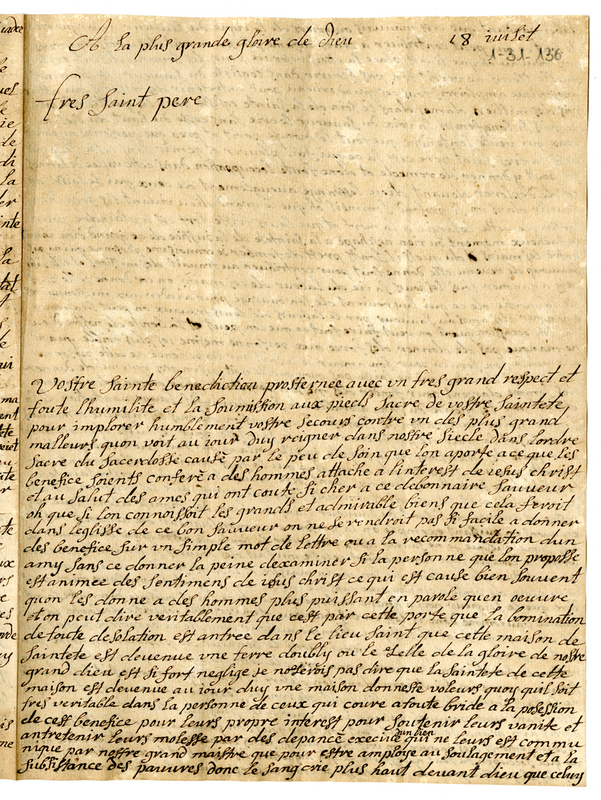 A la plus grande gloire de dieu 18 iuilet
1-31-136
tres saint pere
Vostre sainte benediction prosternee avec vn tres grand respect et
toute lhumilite et la soumission aux pieds sacre de vostre saintete
pour implorer humblement vostre secours contre vn des plus grand
malleurs quon voit au iour duy reigner dans nostre siecle dans lordre
sacre du sacerdosse causé par le peu de soin que lon aporte a ce que les
benefice soients conferé a des hommes attache a linterest de iesus christ
et au salut des ames qui ont couté si cher a ce debonnaire sauveur
oh que si lon connoissoit les grands et admirable biens que cela feroit
dans leglisse de ce bon sauveur on ne se rendroit pas si facile a donner
des benefice sur vn simple mot de lettre ou a la recommandation dun
amy sans ce donner la peine dexaminer si la personne que lon proposse
est animee des sentimens de iesus christ ce qui est cause bien souvent
quon les donne a des hommes plus puissant en parole quen oeuvre
et on peut dire veritablement que cest par cette porte que labomination
de toute desolation est antree dans le lieu saint que cette maison de
saintete est devenue vne terre doubly ou le zelle de la gloire de nostre
grand dieu est si fort neglige je noserois pas dire que la saintete de cette
maison est devenue au iour duy vne maison donneste voleurs quoy quil soit
tres veritable dans la personne de ceux qui coure a toute bride a la posession
de cest benefice pour leurs propre interest pour soutenir leurs vanite et
antretenir leurs molesse par des depance dun bien qui ne leurs est commu
nique par nostre grand maistre que pour estre amploié au soulagement et a la
subsistance des pauvres donc le sang crie plus haut devant dieu que celuy